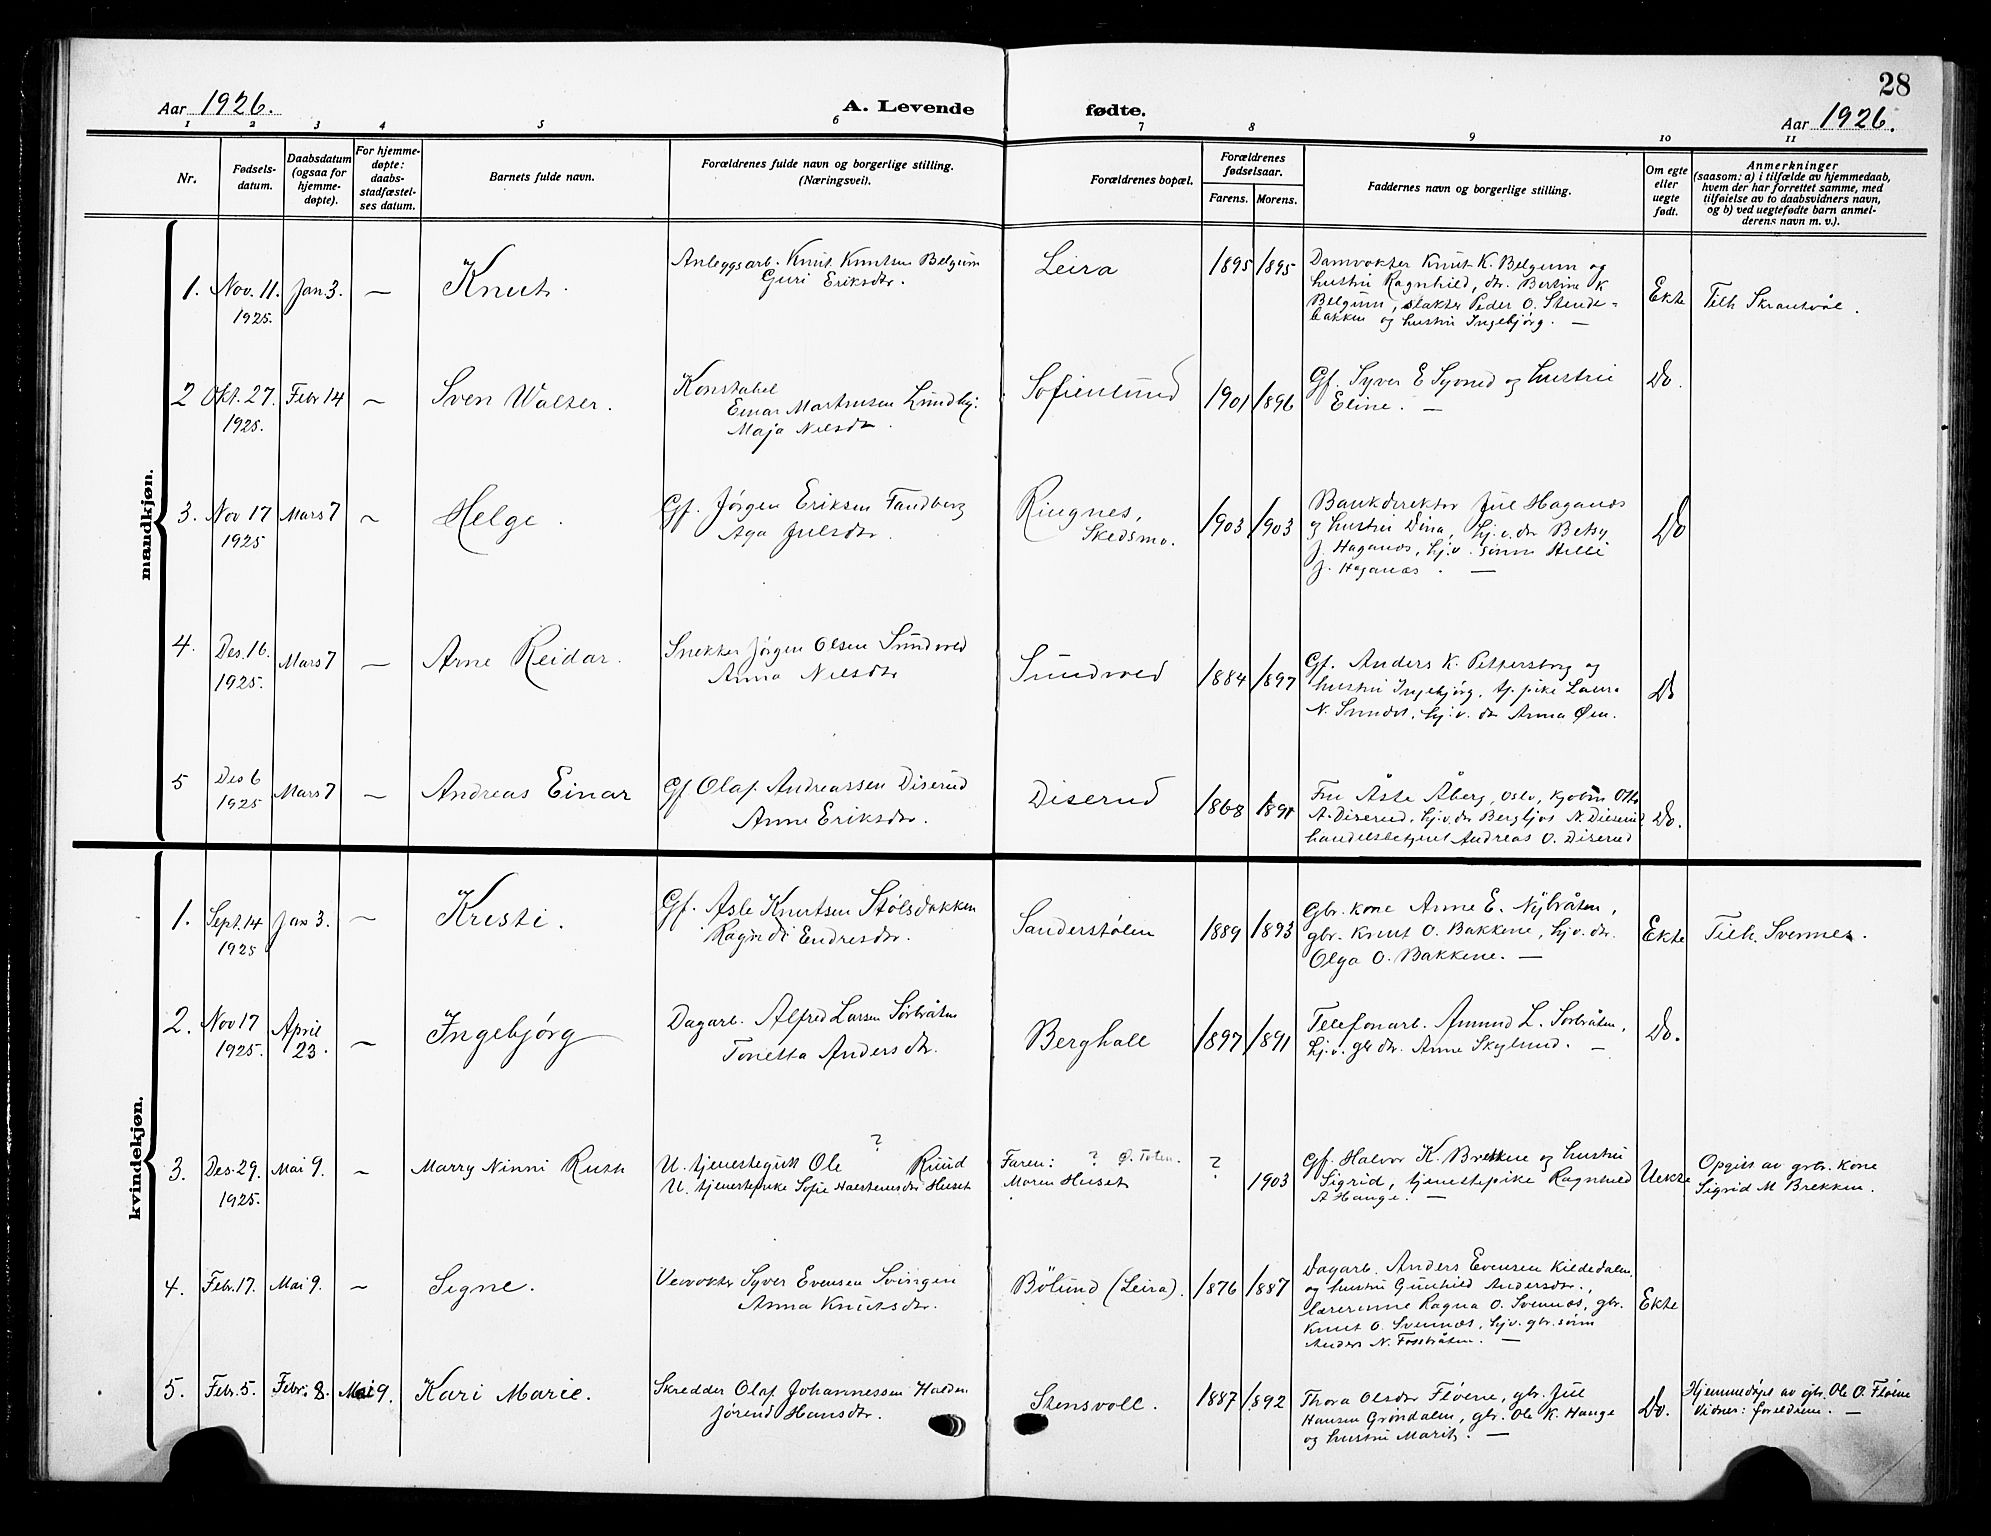 28
Aar 1926.
A. Levende fødte.
Aar 1926.
1 2 3 4 5 6 7 8 9 10 11
Nr.
Fødsels-
datum.
Daabsdatum
(ogsaa for
hjemme-
døpte).
For hjemme-
døpte:
daabs-
stadfæstel-
ses datum.
Barnets fulde navn.
Forældrenes fulde navn og borgerlige stilling.
(Næringsvei).
Forældrenes bopæl.
Forældrenes
fødselsaar.
Farens. Morens.
Faddernes navn og borgerlige stilling.
Om egte
eller
uegte
født.
Anmerkninger
(saasom: a) i tilfælde av hjemmedaab,
hvem der har forrettet samme, med
tilføielse av to daabsvidners navn,
og b) ved uegtefødte barn anmel-
derens navn m. v.).
mandkjøn.
1. Nov. 11. 1925. Jan 3. — Knut.
Anleggsarb. Knut Knutsen Belgum
Guri Eriksdtr.
Leira
1895 1895
Damvokter Knut K. Belgum og
hustru Ragnhild, dtr. Bertine K
Belgum, slakter Peder O. Stende-
bakken og hustru Ingebjørg. —
Ekte
Tilh. Skrautvål.
2 Okt. 27. 1925. Febr 14 — Sven Walter.
Konstabel
Einar Martinsen Lundby.
Maja Nilsdtr.
Sofienlund
1901 1896
Gf. Syver E Syned og hustru
Eline. —
Do.
3. Nov 17 1925 Mars 7 — Helge.
Gf. Jørgen Eriksen Fandberg
Aga Julsdtr.
Ringnes,
Skedsmo.
1903 1903
Bankdirektør Jul Haganæs
og hustru Dina, hj.v. dtr Betsy
J. Haganæs, hj.v. sønn Helle
J. Haganæs. —
Do
4. Des. 16. 1925. Mars 7 — Arne Reidar.
Snekker Jørgen Olsen Sundvold
Anna Nilsdtr
Sundvold
1884 1897
Gf. Anders K. Pettersborg og
hustru Ingebjørg, tj. pike Laura
N. Sundvl, hj.v. dtr Anna Øen.
Do
5 Des 6 1925 Mars 7 — Andreas Einar
Gf Olaf Andreassen Diserud
Anne Eriksdtr.
Diserud
1868 1891
Fru Åste Åberg, Oslo, kjøbm Otto
A. Diserud, hj.v. dtr Bergljot N. Diserud,
handelsbetjent Andreas O. Diserud
Do.
kvindekjøn.
1. Sept. 14 1925 Jan 3. — Kristi.
Gf. Asle Knutsen Stølsbakken
Ragndi Endresdtr.
Sanderstølen
1889 1893
Gbr. kone Anne E. Nybråten,
gbr. Knut O. Bakkene, hj.v. dtr.
Olga O. Bakkene. —
Ekte
Tilh. Svennes.
2. Nov 17 1925. April 23. — Ingebjørg
Dagarb. Alfred Larsen Sørbråten
Tonetta Andersdtr.
Berghall
1897 1891
Telefonarb. Amund L. Sørbråten,
hj.v. gbr dtr. Anne Skylund. —
Do.
3. Des. 29. 1925. Mai 9. — Marry Ninni Ruth
U. tjenestegutt Ole ? Rund
U. tjenestepike Sofie Halstensdtr Huset
Faren: ? Ø. Toten.
Moren Huset
? 1903
Gf. Halvor K. Brekken og hustru
Sigrid, tjenestepike Ragnhild
A Hauge. —
Uekte
Opgitt av gbr. kone
Sigrid M Brekken.
4. Febr. 17. Mai 9. — Signe.
Veivokter Syver Evensen Svingen
Anna Knutsdtr.
Bölund (Leira).
1876 1887
Dagarb. Anders Evensen Kildedalen,
og hustru Gunhild Andersdtr.,
lærerinne Ragna O. Svennes, gbr.
Knut O. Svennes, hj.v. gbr. sønn
Anders N. Fossbråten. —
Ekte
5. Febr. 5. Febr. 8. Mai 9. Kari Marie.
Skredder Olaf Johannessen Halden
Jørend Hansdtr.
Stensvoll.
1887 1892
Thora Olsdtr Fløene, gbr. Jul
Hansen Grøndalen, gbr. Ole K. Hauge
og hustru Marit. —
Do.
Hjemmedøpt av gbr. Ole O. Fløene
Vidner: foreldrene. —